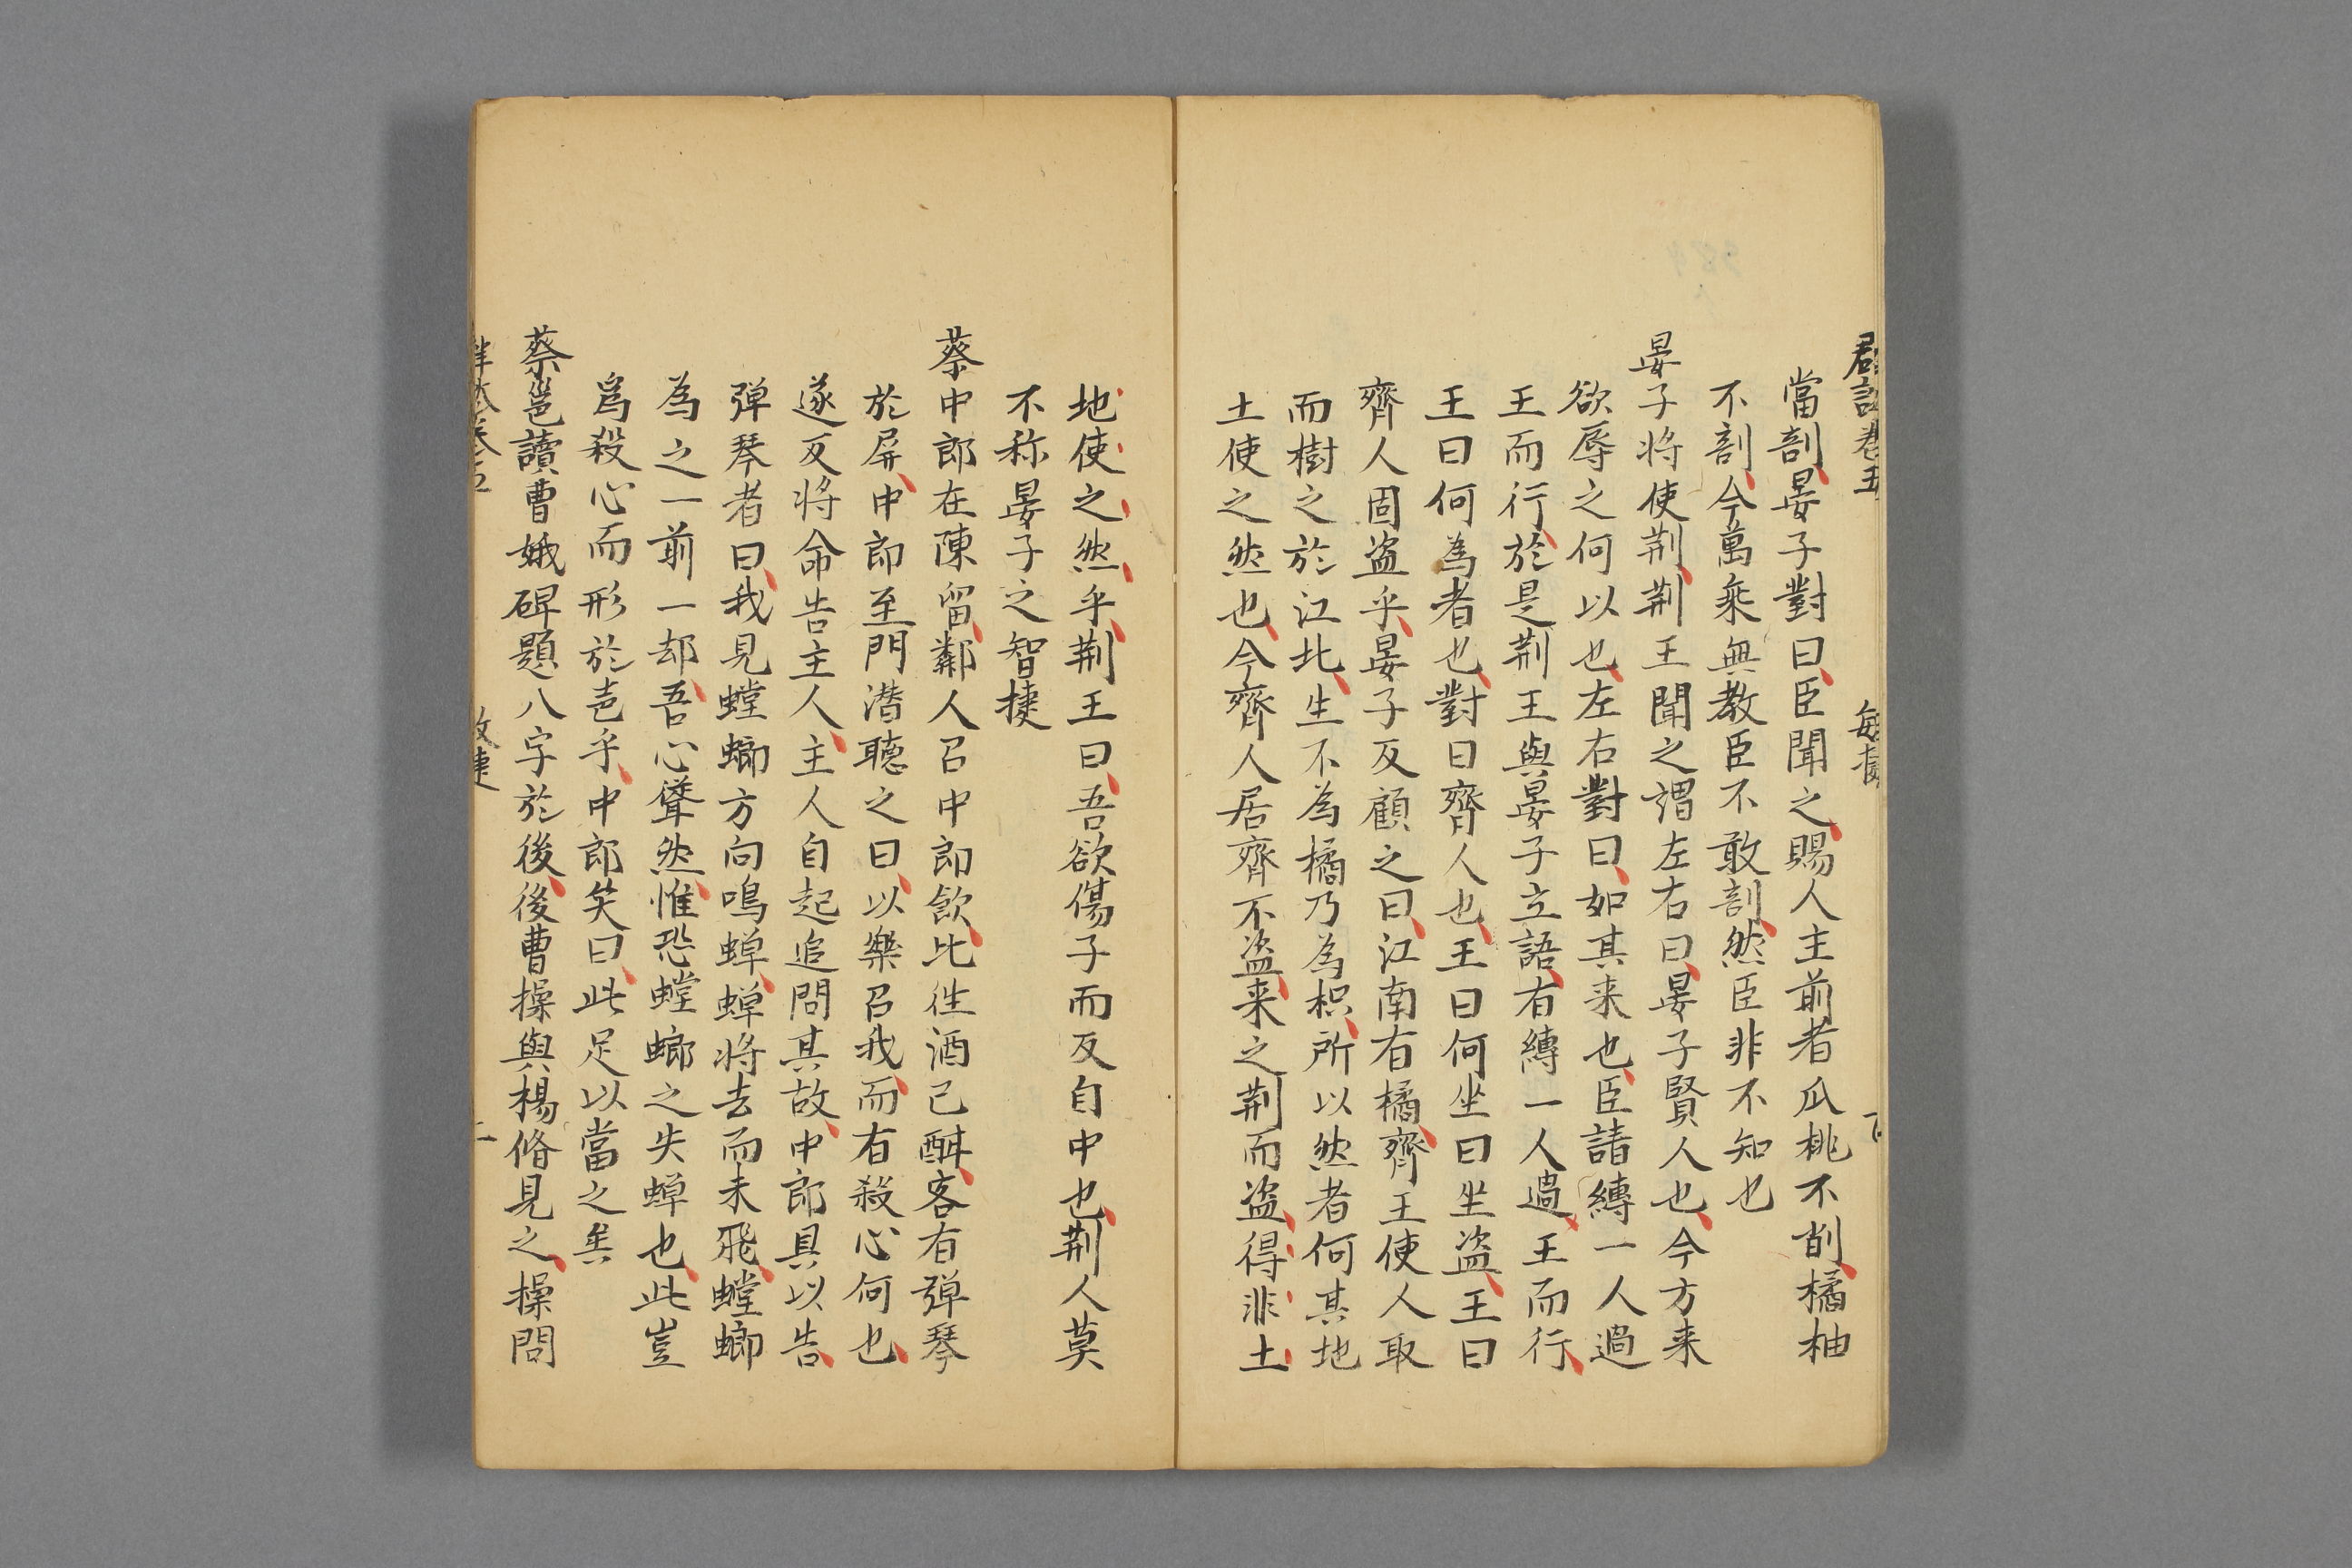 當剖晏子對曰臣聞之賜人主前者瓜桃不削橘柚
不剖今萬乘無教臣不敢剖然臣非不知也
晏子將使荆荆王聞之謂左右曰晏子賢人也今方来
欲辱之何以也左右對曰如其来也臣請縛一人過
王而行於是荆王與晏子立語有縛一人過王而行
王曰何為者也對曰齊人也王曰何坐曰坐盗王曰
齊人固盗乎晏子反顧之曰江南有橘齊王使人取
而樹之於江北生不為橘乃為枳所以然者何其地
土使之然也今齊人居齊不盗来之荆而盗得非土
地使之然乎荆王曰吾欲傷子而反自中也荆人莫
不称晏子之智捷
蔡中郎在陳留鄰人召中郎飲比往酒已酣客有弹琴
於屏中郎至門潜聴之曰以樂召我而有殺心何也
遂反将命告主人主人自起追問其故中郎具以告
弹琴者曰我見螳螂方向鳴蝉蝉将去而未飛螳螂
為之一前一却吾心聳然惟恐螳螂之失蝉也此豈
爲殺心而形於声乎中郎笑曰此足以當之矣
蔡邕讀曹娥碑題八字於後後曹操與楊脩見之操問